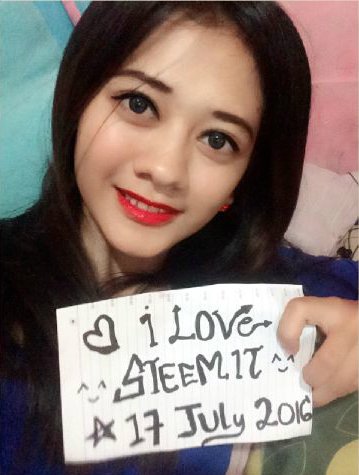 ♡ i LOVe
^_^ STEEMIT ^_^
☆ 17 July 2016